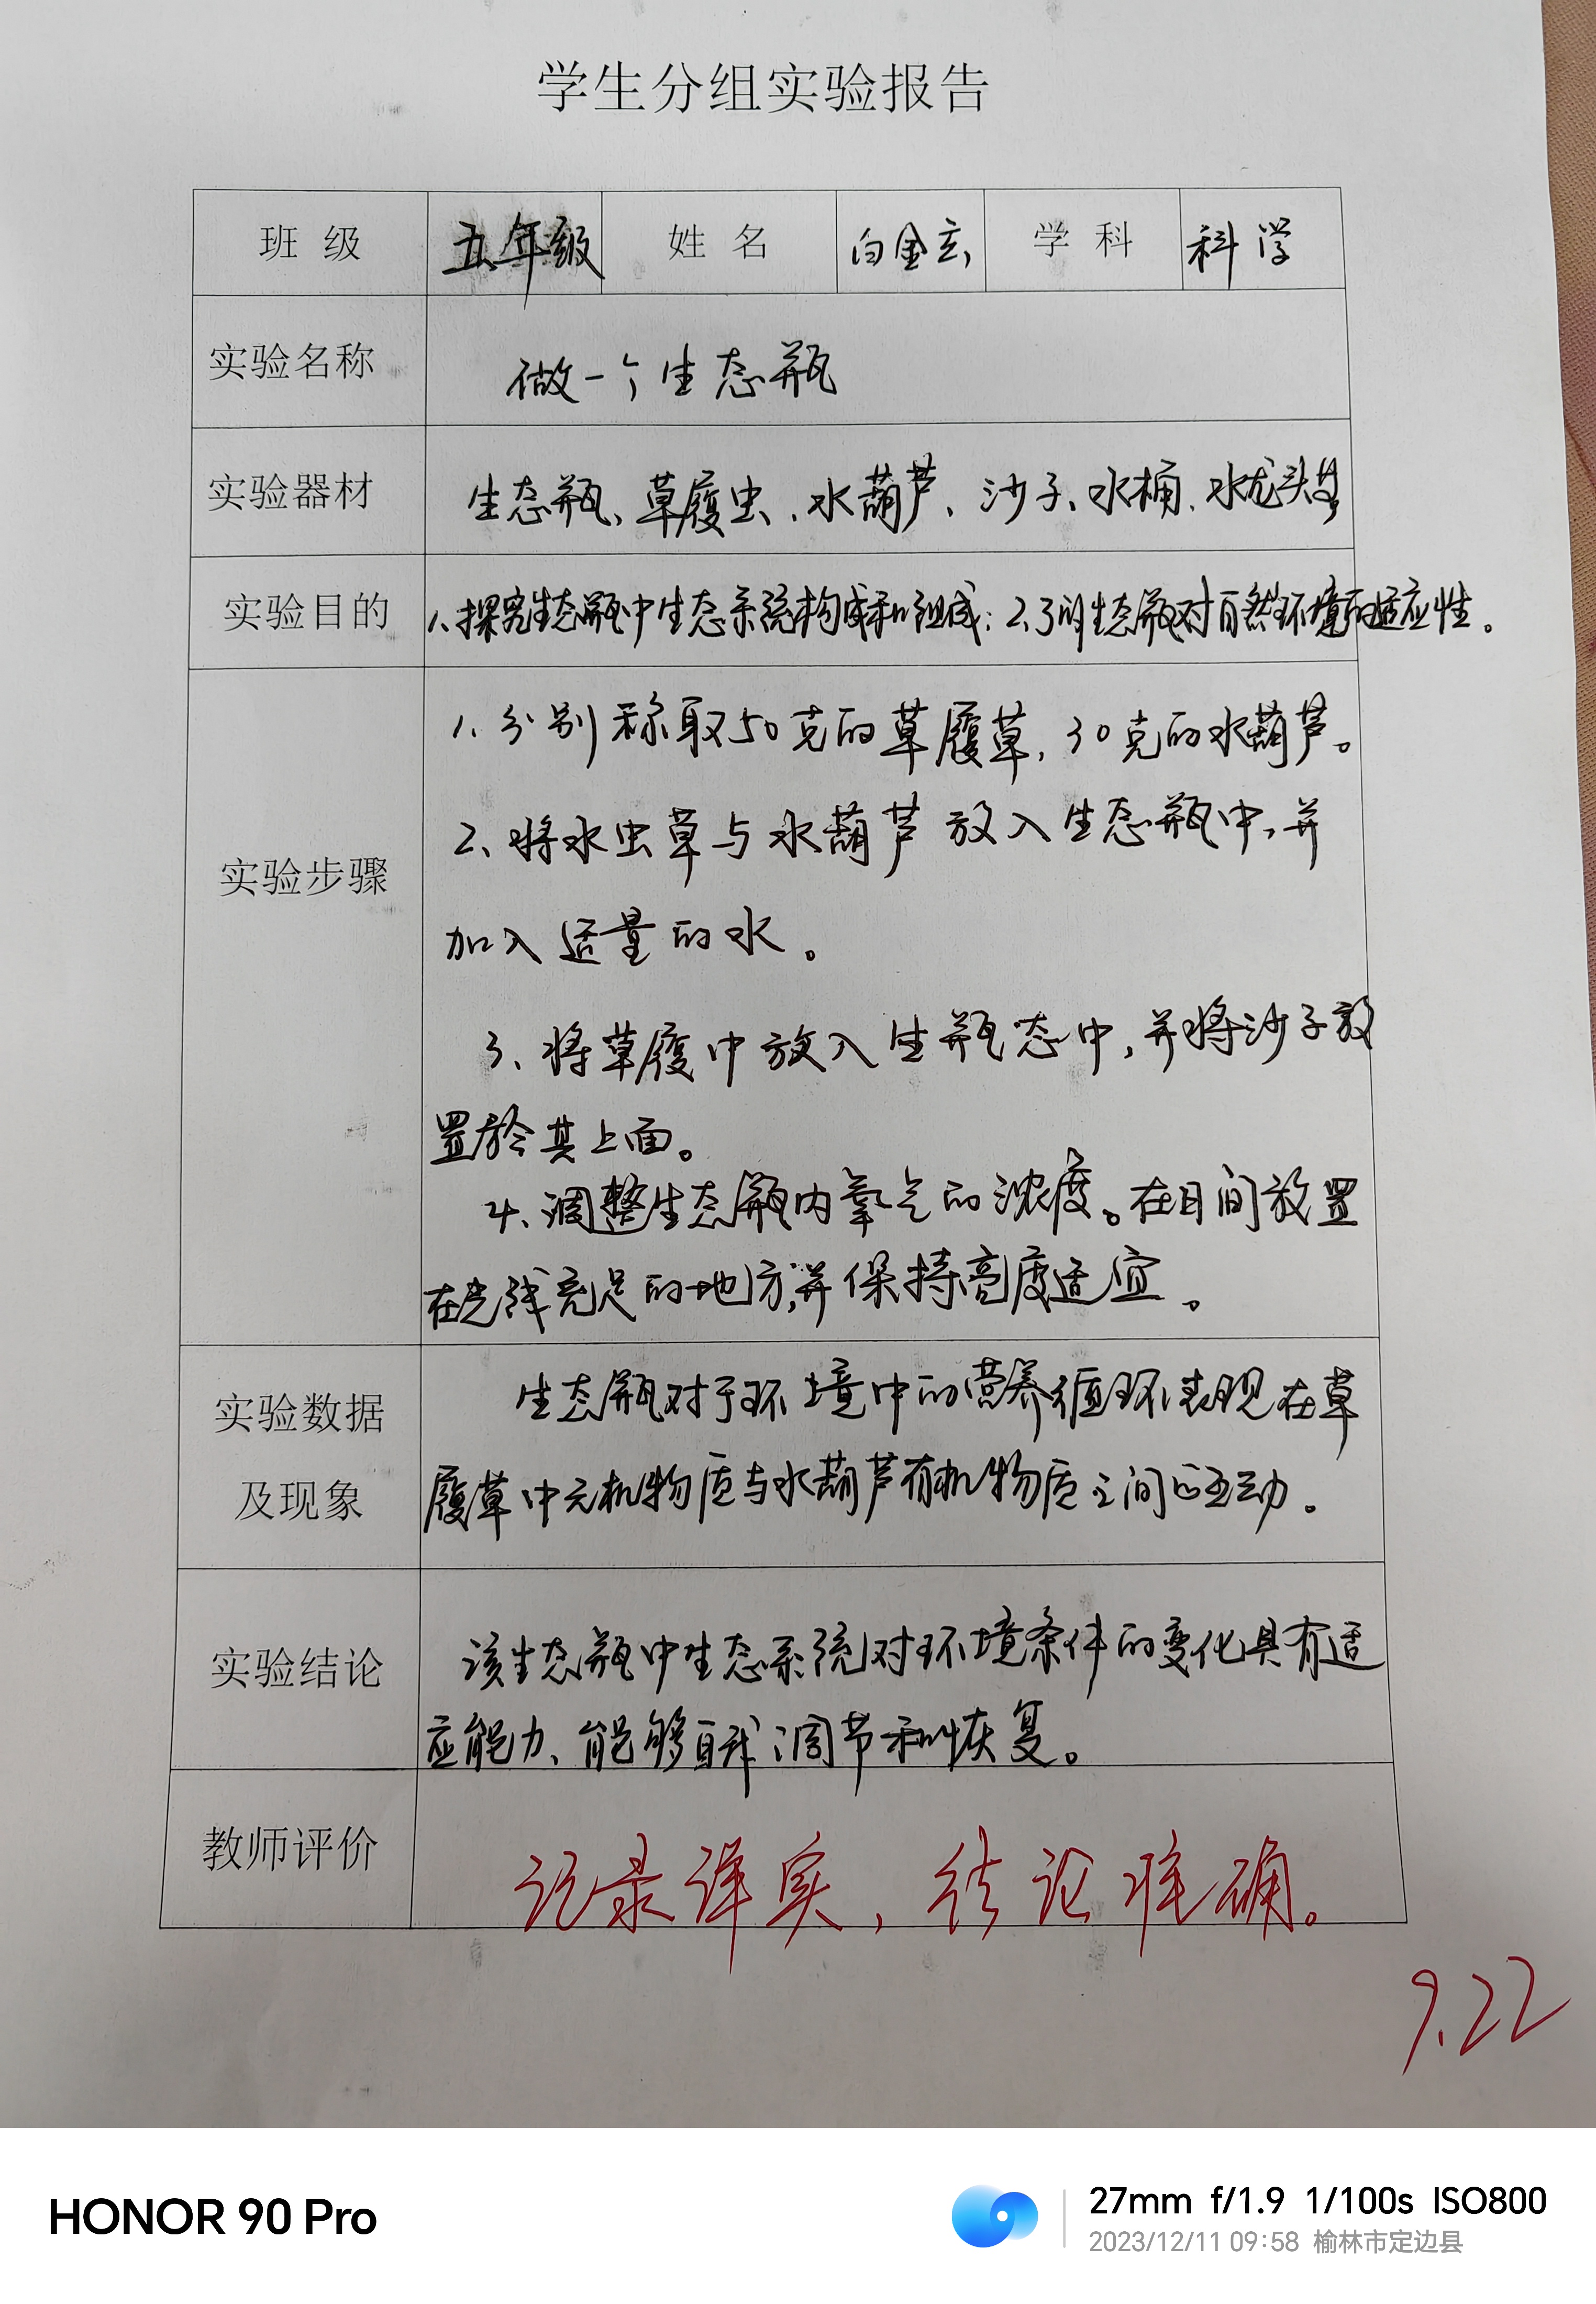 学生分组实验报告
班 级 五年级 姓 名 白金玄 学 科 科学
实验名称 做一个生态瓶
实验器材 生态瓶、草履虫、水葫芦、沙子、水桶、水龙头等
实验目的 1、探究生态瓶中生态系统构成和组成；2、了解生态瓶对自然环境的适应性。
实验步骤
1、分别称取50克的草履草，30克的水葫芦。
2、将水虫草与水葫芦放入生态瓶中，并
加入适量的水。
3、将草履中放入生瓶态中，并将沙子放
置於其上面。
4、调整生态瓶内氧气的浓度。在日间放置
在光线充足的地方，并保持亮度适宜。
实验数据
及现象
生态瓶对于环境中的营养循环表现在草
履草中无机物质与水葫芦有机物质之间的互动。
实验结论
该生态瓶中生态系统对环境条件的变化具有适
应能力、能够自我调节和恢复。
教师评价 记录详实，结论准确。
9.22
HONOR 90 Pro
27mm f/1.9 1/100s ISO800
2023/12/11 09:58 榆林市定边县